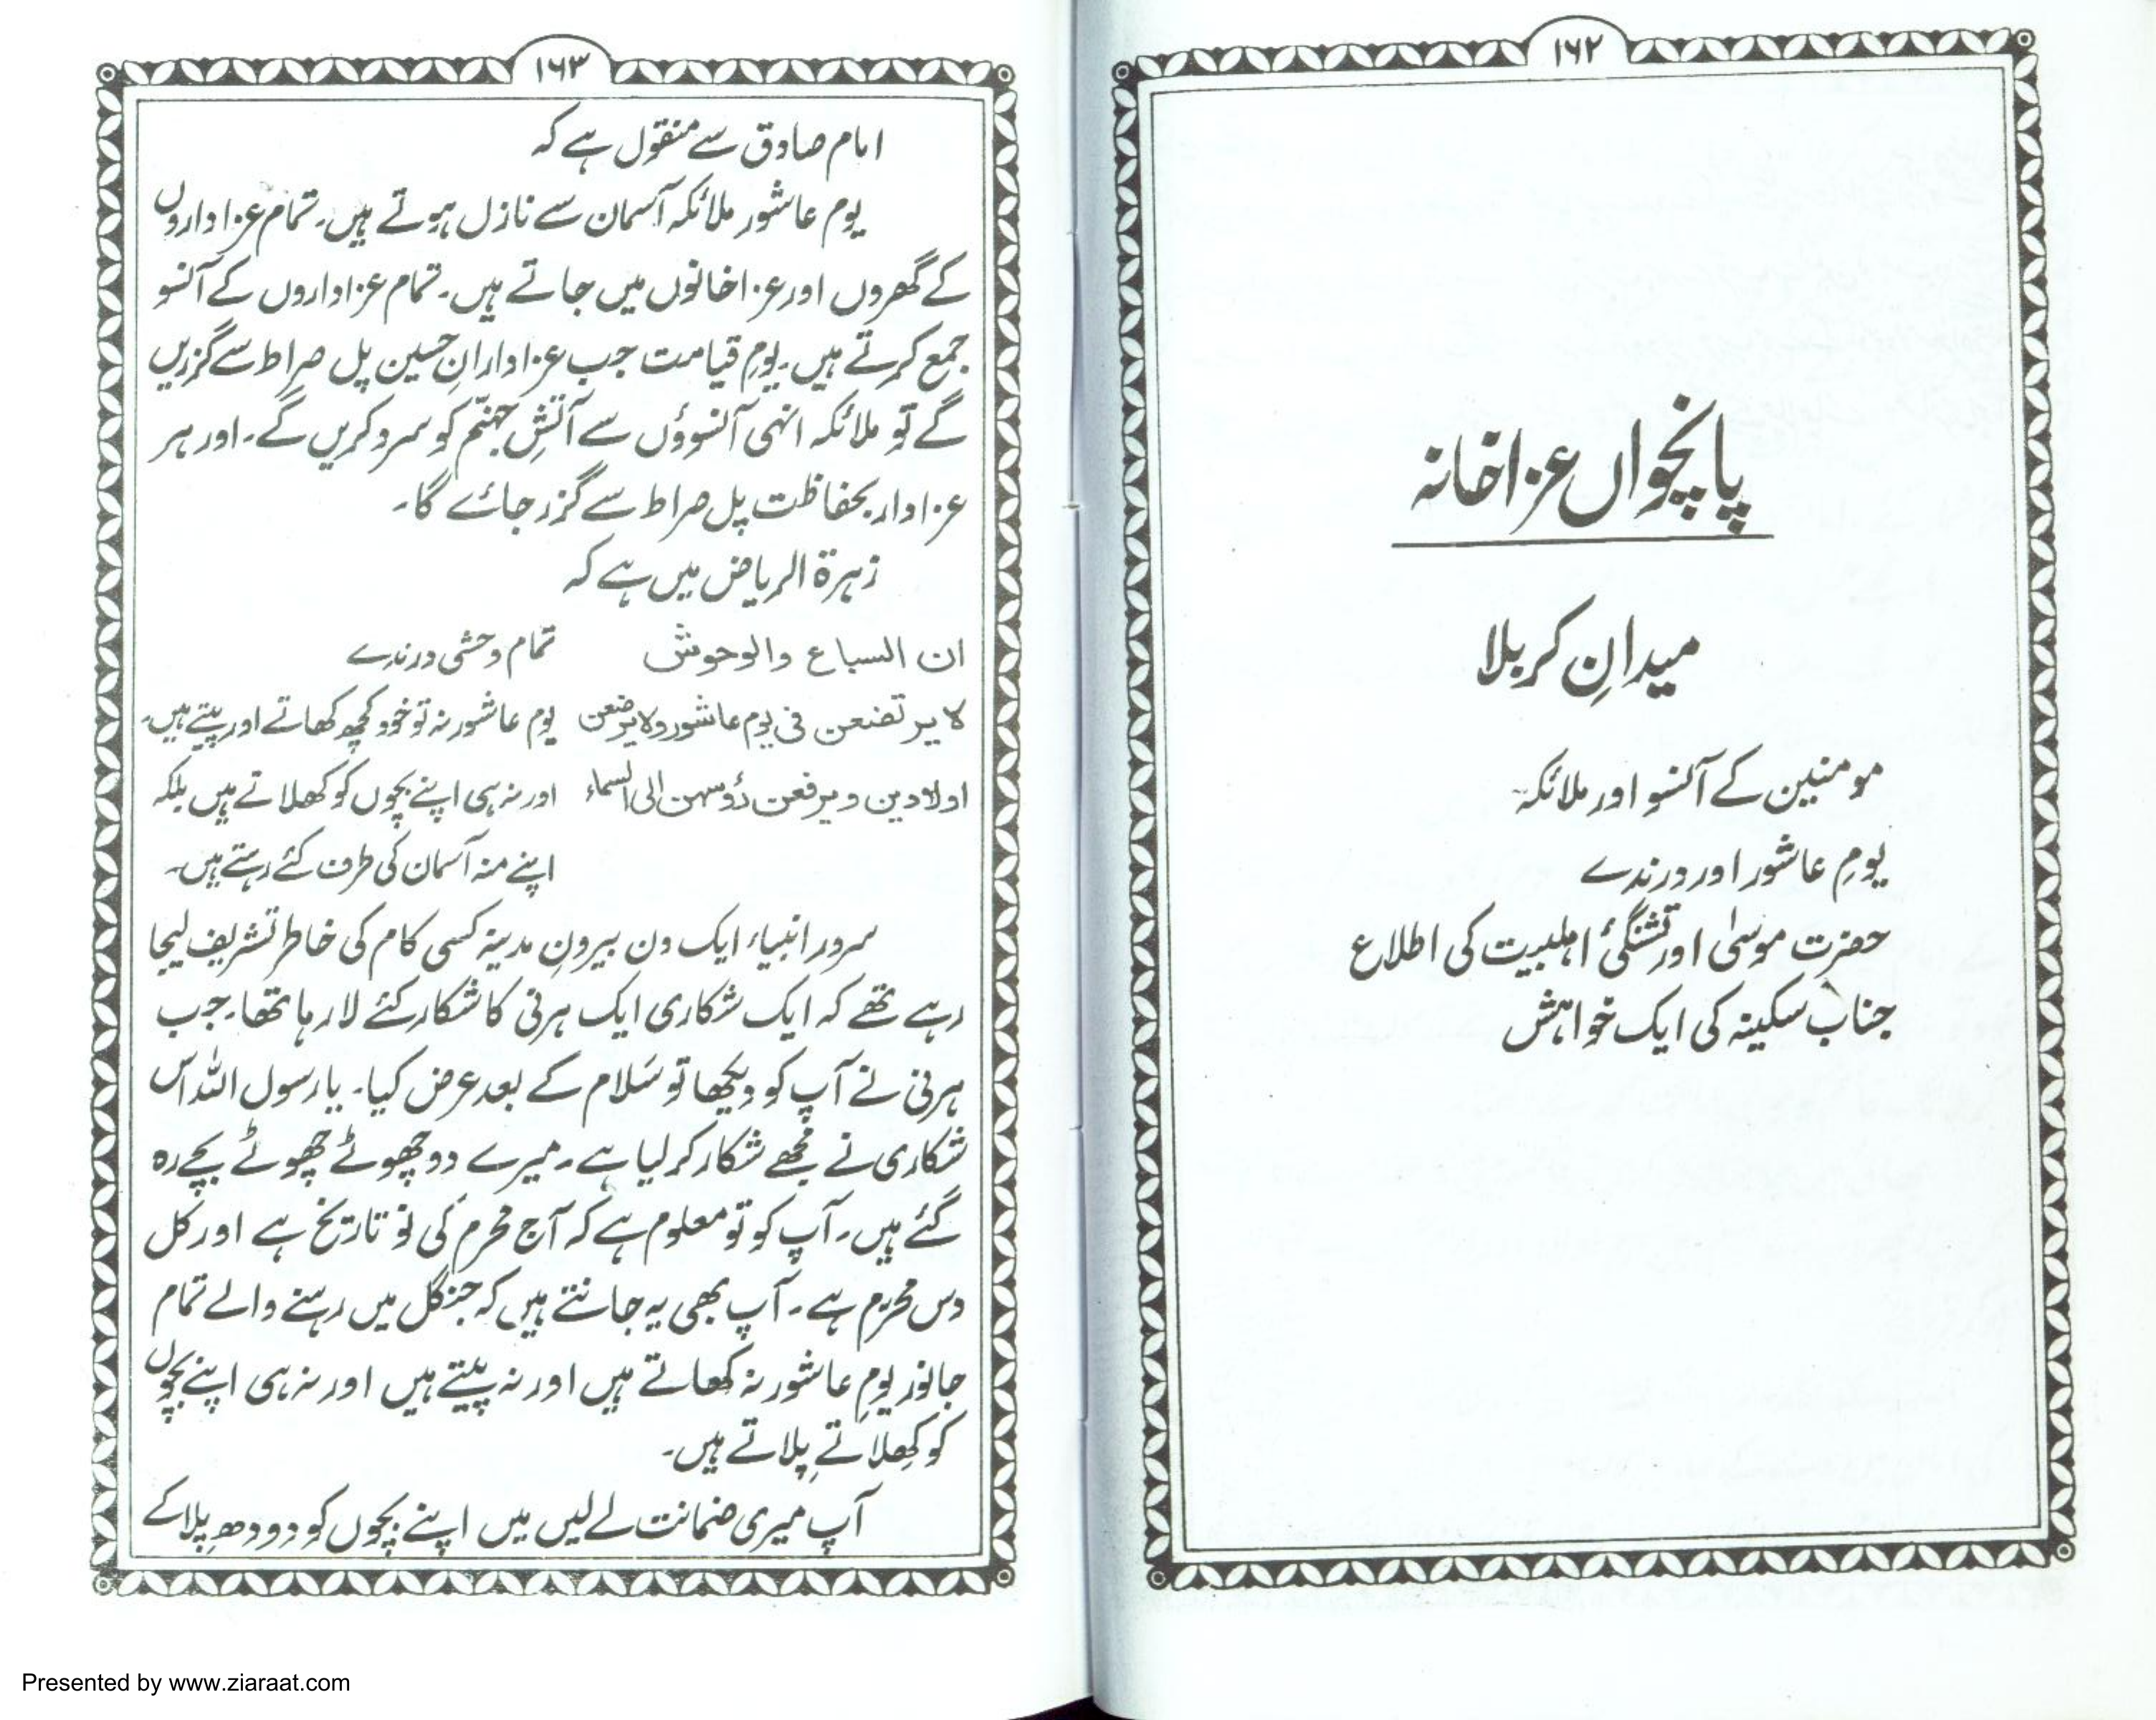 ۱۶۲
پانچواں عزاخانہ
میدانِ کربلا
مومنین کے آنسو اور ملائکہ۔
یومِ عاشور اور درندے
حضرت موسیٰ اور تشنگیٔ اہلبیت کی اطلاع
جناب سکینہ کی ایک خواہش
۱۶۳
امام صادق سے منقول ہے کہ
یوم عاشور ملائکہ آسمان سے نازل ہوتے ہیں۔ تمام عزاداروں
کے گھروں اور عزاخانوں میں جاتے ہیں۔ تمام عزاداروں کے آنسو
جمع کرتے ہیں۔ یومِ قیامت جب عزادارانِ حسین پل صراط سے گزریں
گے تو ملائکہ انہی آنسوؤں سے آتشِ جہنّم کو سرد کریں گے۔ اور ہر
عزادار بحفاظت پل صراط سے گزر جائے گا۔
زہرۃ الریاض میں ہے کہ
ان السباع والوحوش تمام وحشی درندے
لا یرتضعن فی یوم عاشور ولا یرضعن یوم عاشور نہ تو خود کچھ کھاتے اور پیتے ہیں۔
اولادہن و یرفعن رؤسہن الی السماء اور نہ ہی اپنے بچوں کو کھلاتے ہیں بلکہ
اپنے منہ آسمان کی طرف کئے رہتے ہیں۔
سرور انبیاء ایک دن بیرونِ مدینہ کسی کام کی خاطر تشریف لیجا
رہے تھے کہ ایک شکاری ایک ہرنی کا شکار کئے لا رہا تھا۔ جب
ہرنی نے آپ کو دیکھا تو سَلام کے بعد عرض کیا۔ یا رسول اللہ اس
شکاری نے مجھے شکار کر لیا ہے۔ میرے دو چھوٹے چھوٹے بچے رہ
گئے ہیں۔ آپ کو تو معلوم ہے کہ آج محرم کی نو تاریخ ہے اور کل
دس محرم ہے۔ آپ بھی یہ جانتے ہیں کہ جنگل میں رہنے والے تمام
جانور یومِ عاشور نہ کھاتے ہیں اور نہ پیتے ہیں اور نہ ہی اپنے بچوں
کو کھِلاتے پِلاتے ہیں۔
آپ میری ضمانت لے لیں میں اپنے بچوں کو دودھ پِلا کے
Presented by www.ziaraat.com